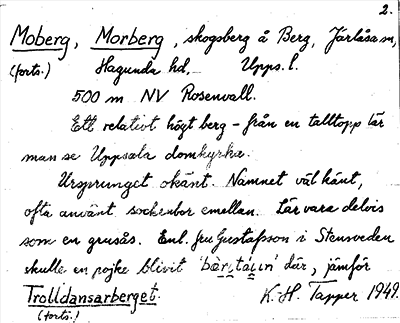 2.
Moberg, Morberg, skogsberg å Berg, Järlåsa sn,
(forts.) Hagunda hd, Upps. l.
500 m NV Rosenvall.
Ett relativt högt berg – från en talltopp lär
man se Uppsala domkyrka.
Ursprunget okänt. Namnet väl känt,
ofta använt sockenbor emellan. Lär vara delvis
som en grusås. Enl. fru Gustafsson i Stensveden
skulle en pojke blivit 'bærɡtáɡın' där, jämför
Trolldansarberget. K. H. Tapper 1949.
(forts.)